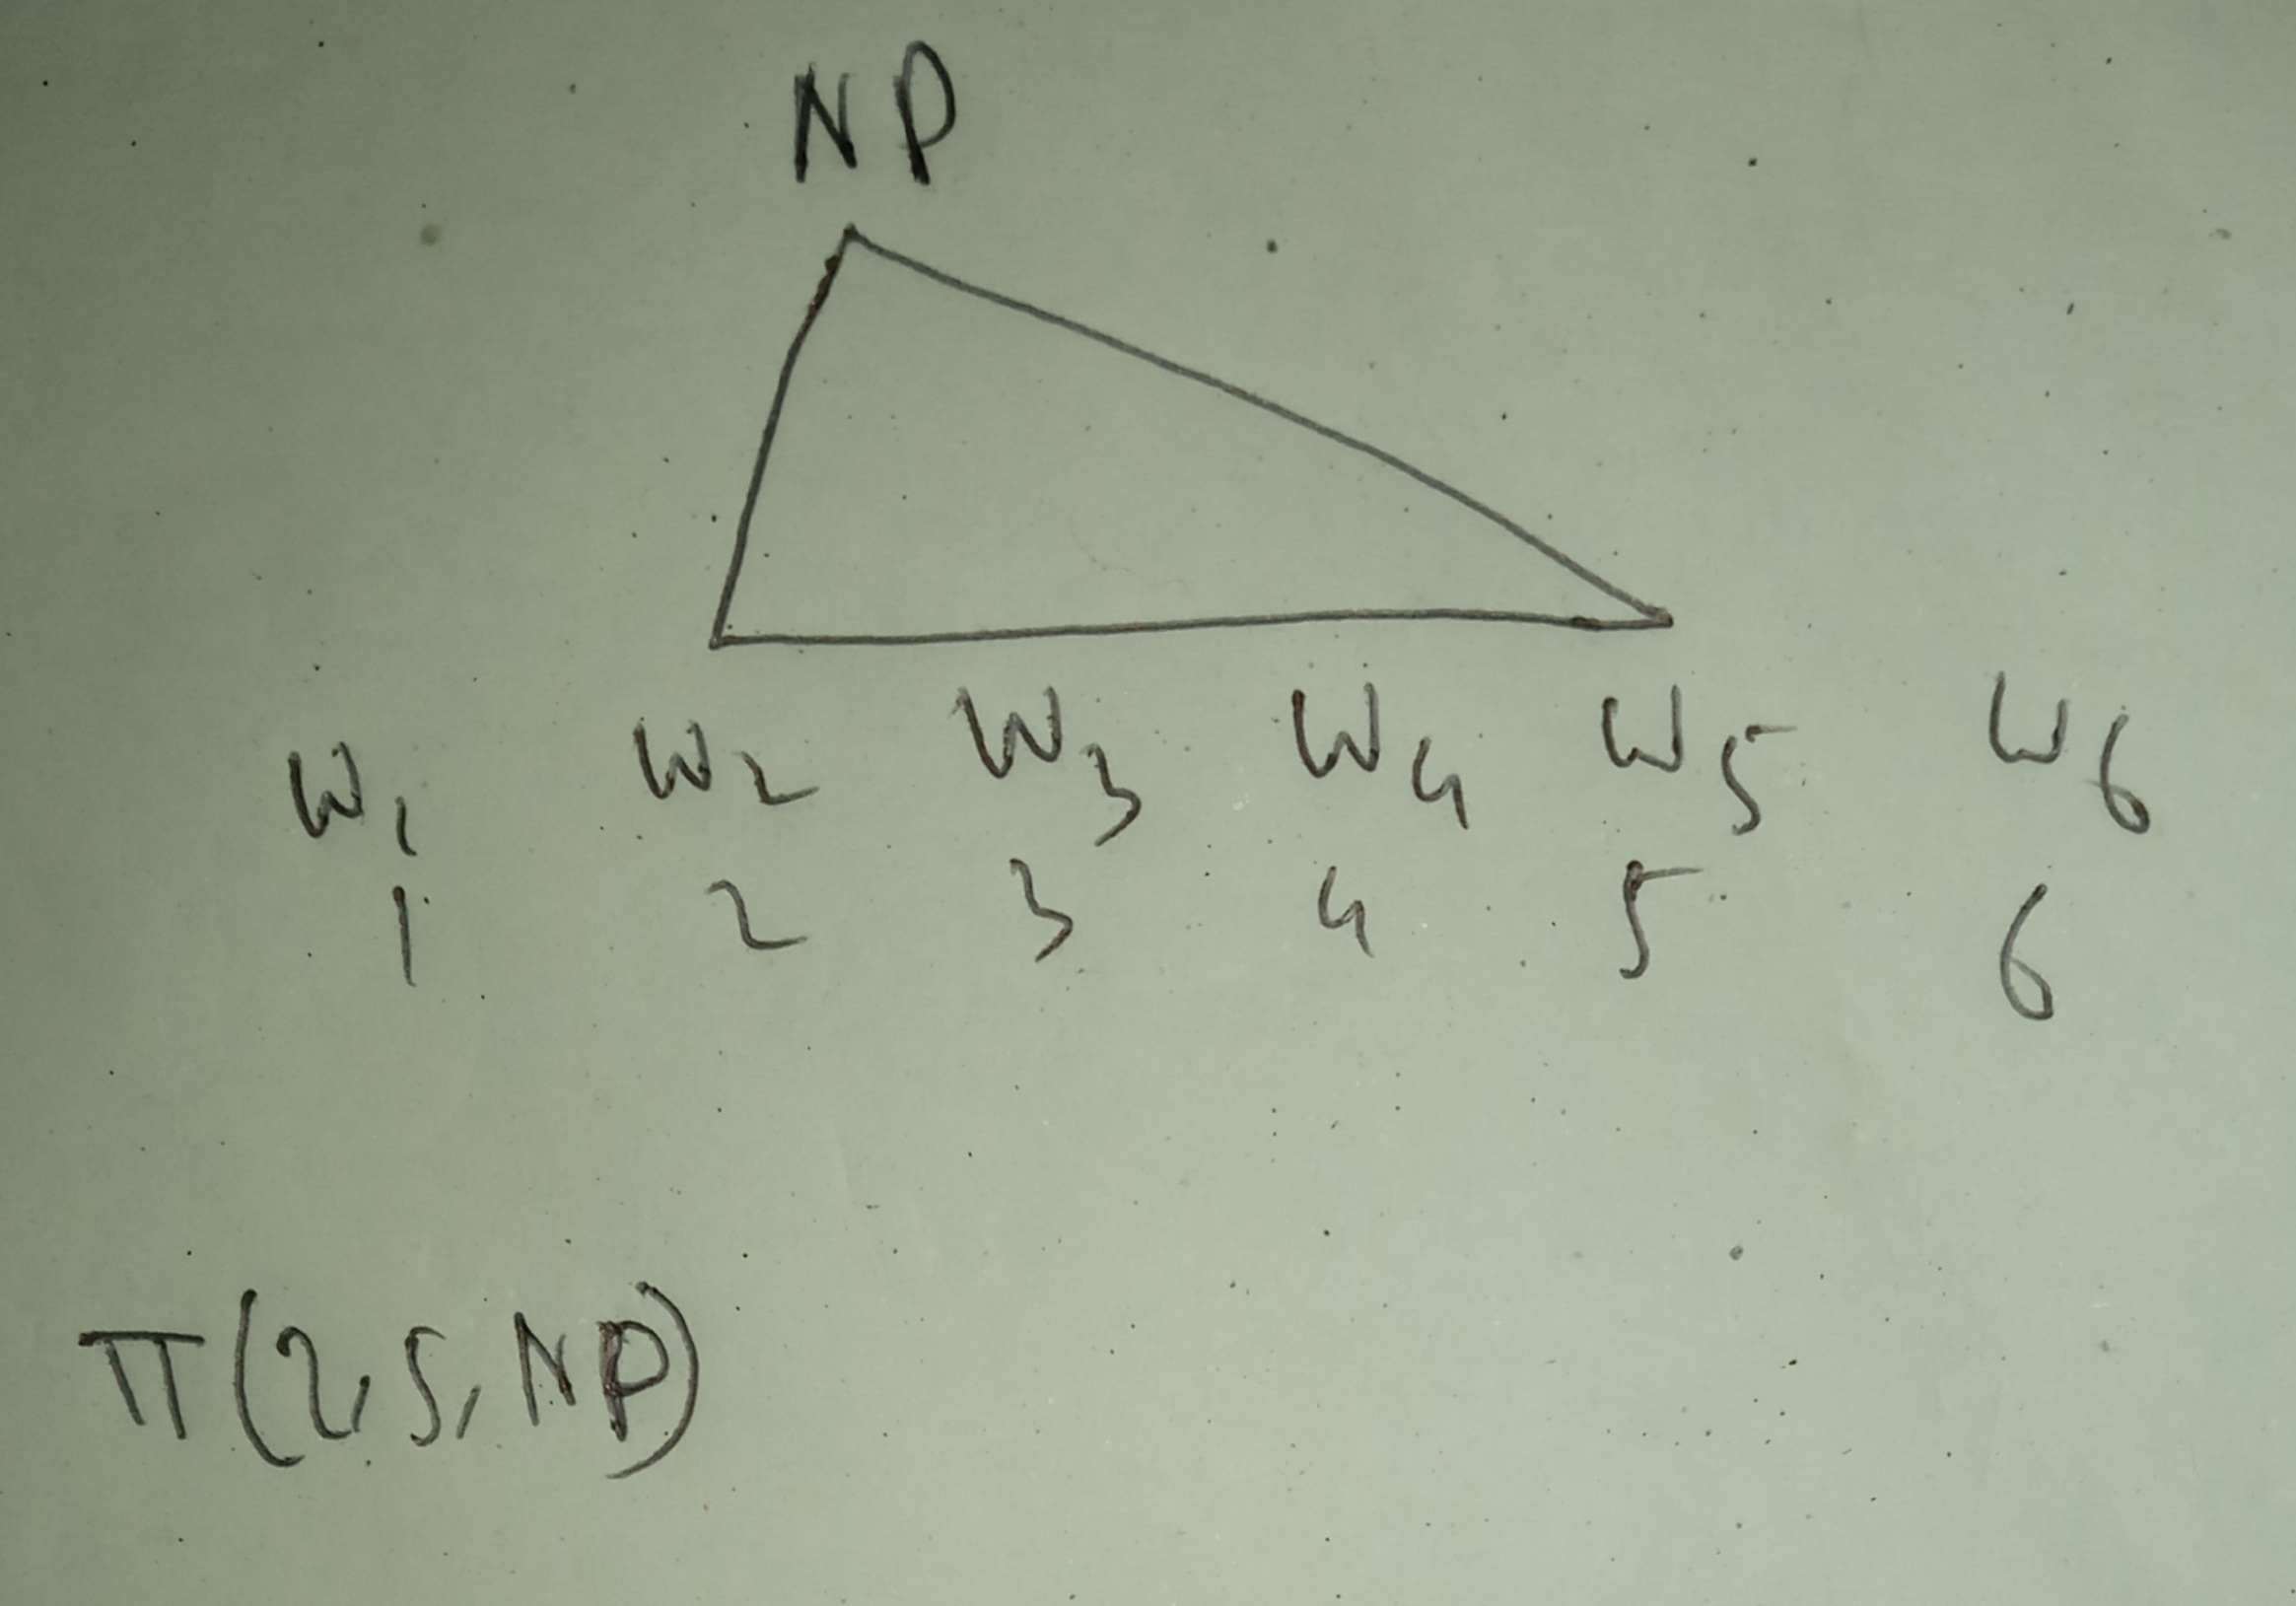 NP
W1 W2 W3 W4 W5 W6
1 2 3 4 5 6
π(2,5,NP)